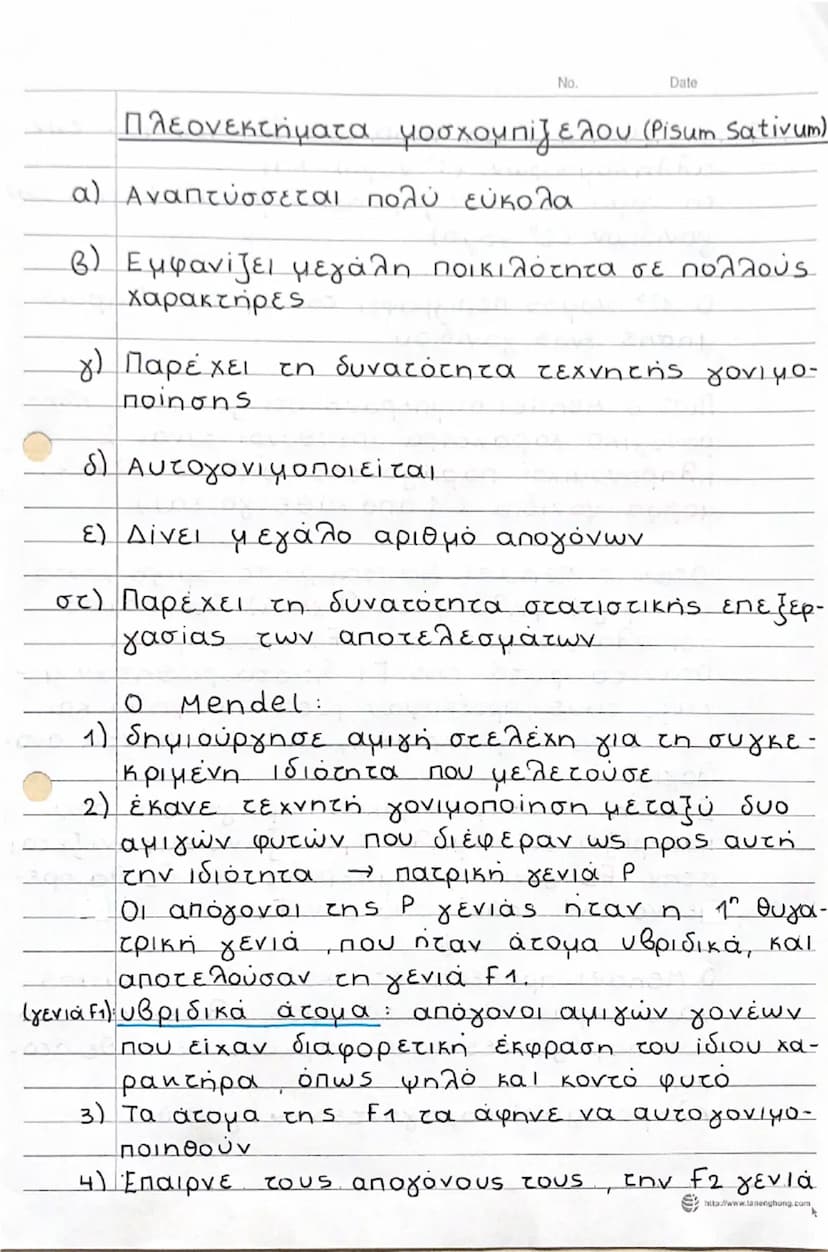 No. Date
Πλεονεκτήματα μοσχομπίζελου (Pisum Sativum)
α) Αναπτύσσεται πολύ εύκολα
β) Εμφανίζει μεγάλη ποικιλότητα σε πολλούς
χαρακτήρες
γ) Παρέχει τη δυνατότητα τεχνητής γονιμο-
ποίησης
δ) Αυτογονιμοποιείται
ε) Δίνει μεγάλο αριθμό απογόνων
στ) Παρέχει τη δυνατότητα στατιστικής επεξερ-
γασίας των αποτελεσμάτων
Ο Mendel:
1) δημιούργησε αμιγή στελέχη για τη συγκε-
κριμένη ιδιότητα που μελετούσε
2) έκανε τεχνητή γονιμοποίηση μεταξύ δυο
αμιγών φυτών που διέφεραν ως προς αυτή
την ιδιότητα → πατρική γενιά P
- Οι απόγονοι της P γενιάς ήταν η 1η θυγα-
τρική γενιά, που ήταν άτομα υβριδικά, και
αποτελούσαν τη γενιά F1.
(γενιά F1): υβριδικά άτομα: απόγονοι αμιγών γονέων
που είχαν διαφορετική έκφραση του ίδιου χα-
ρακτήρα, όπως ψηλό και κοντό φυτό
3) Τα άτομα της F1 τα άφηνε να αυτογονιμο-
ποιηθούν
4) Έπαιρνε τους απογόνους τους, την F2 γενιά
http://www.lanenghong.com